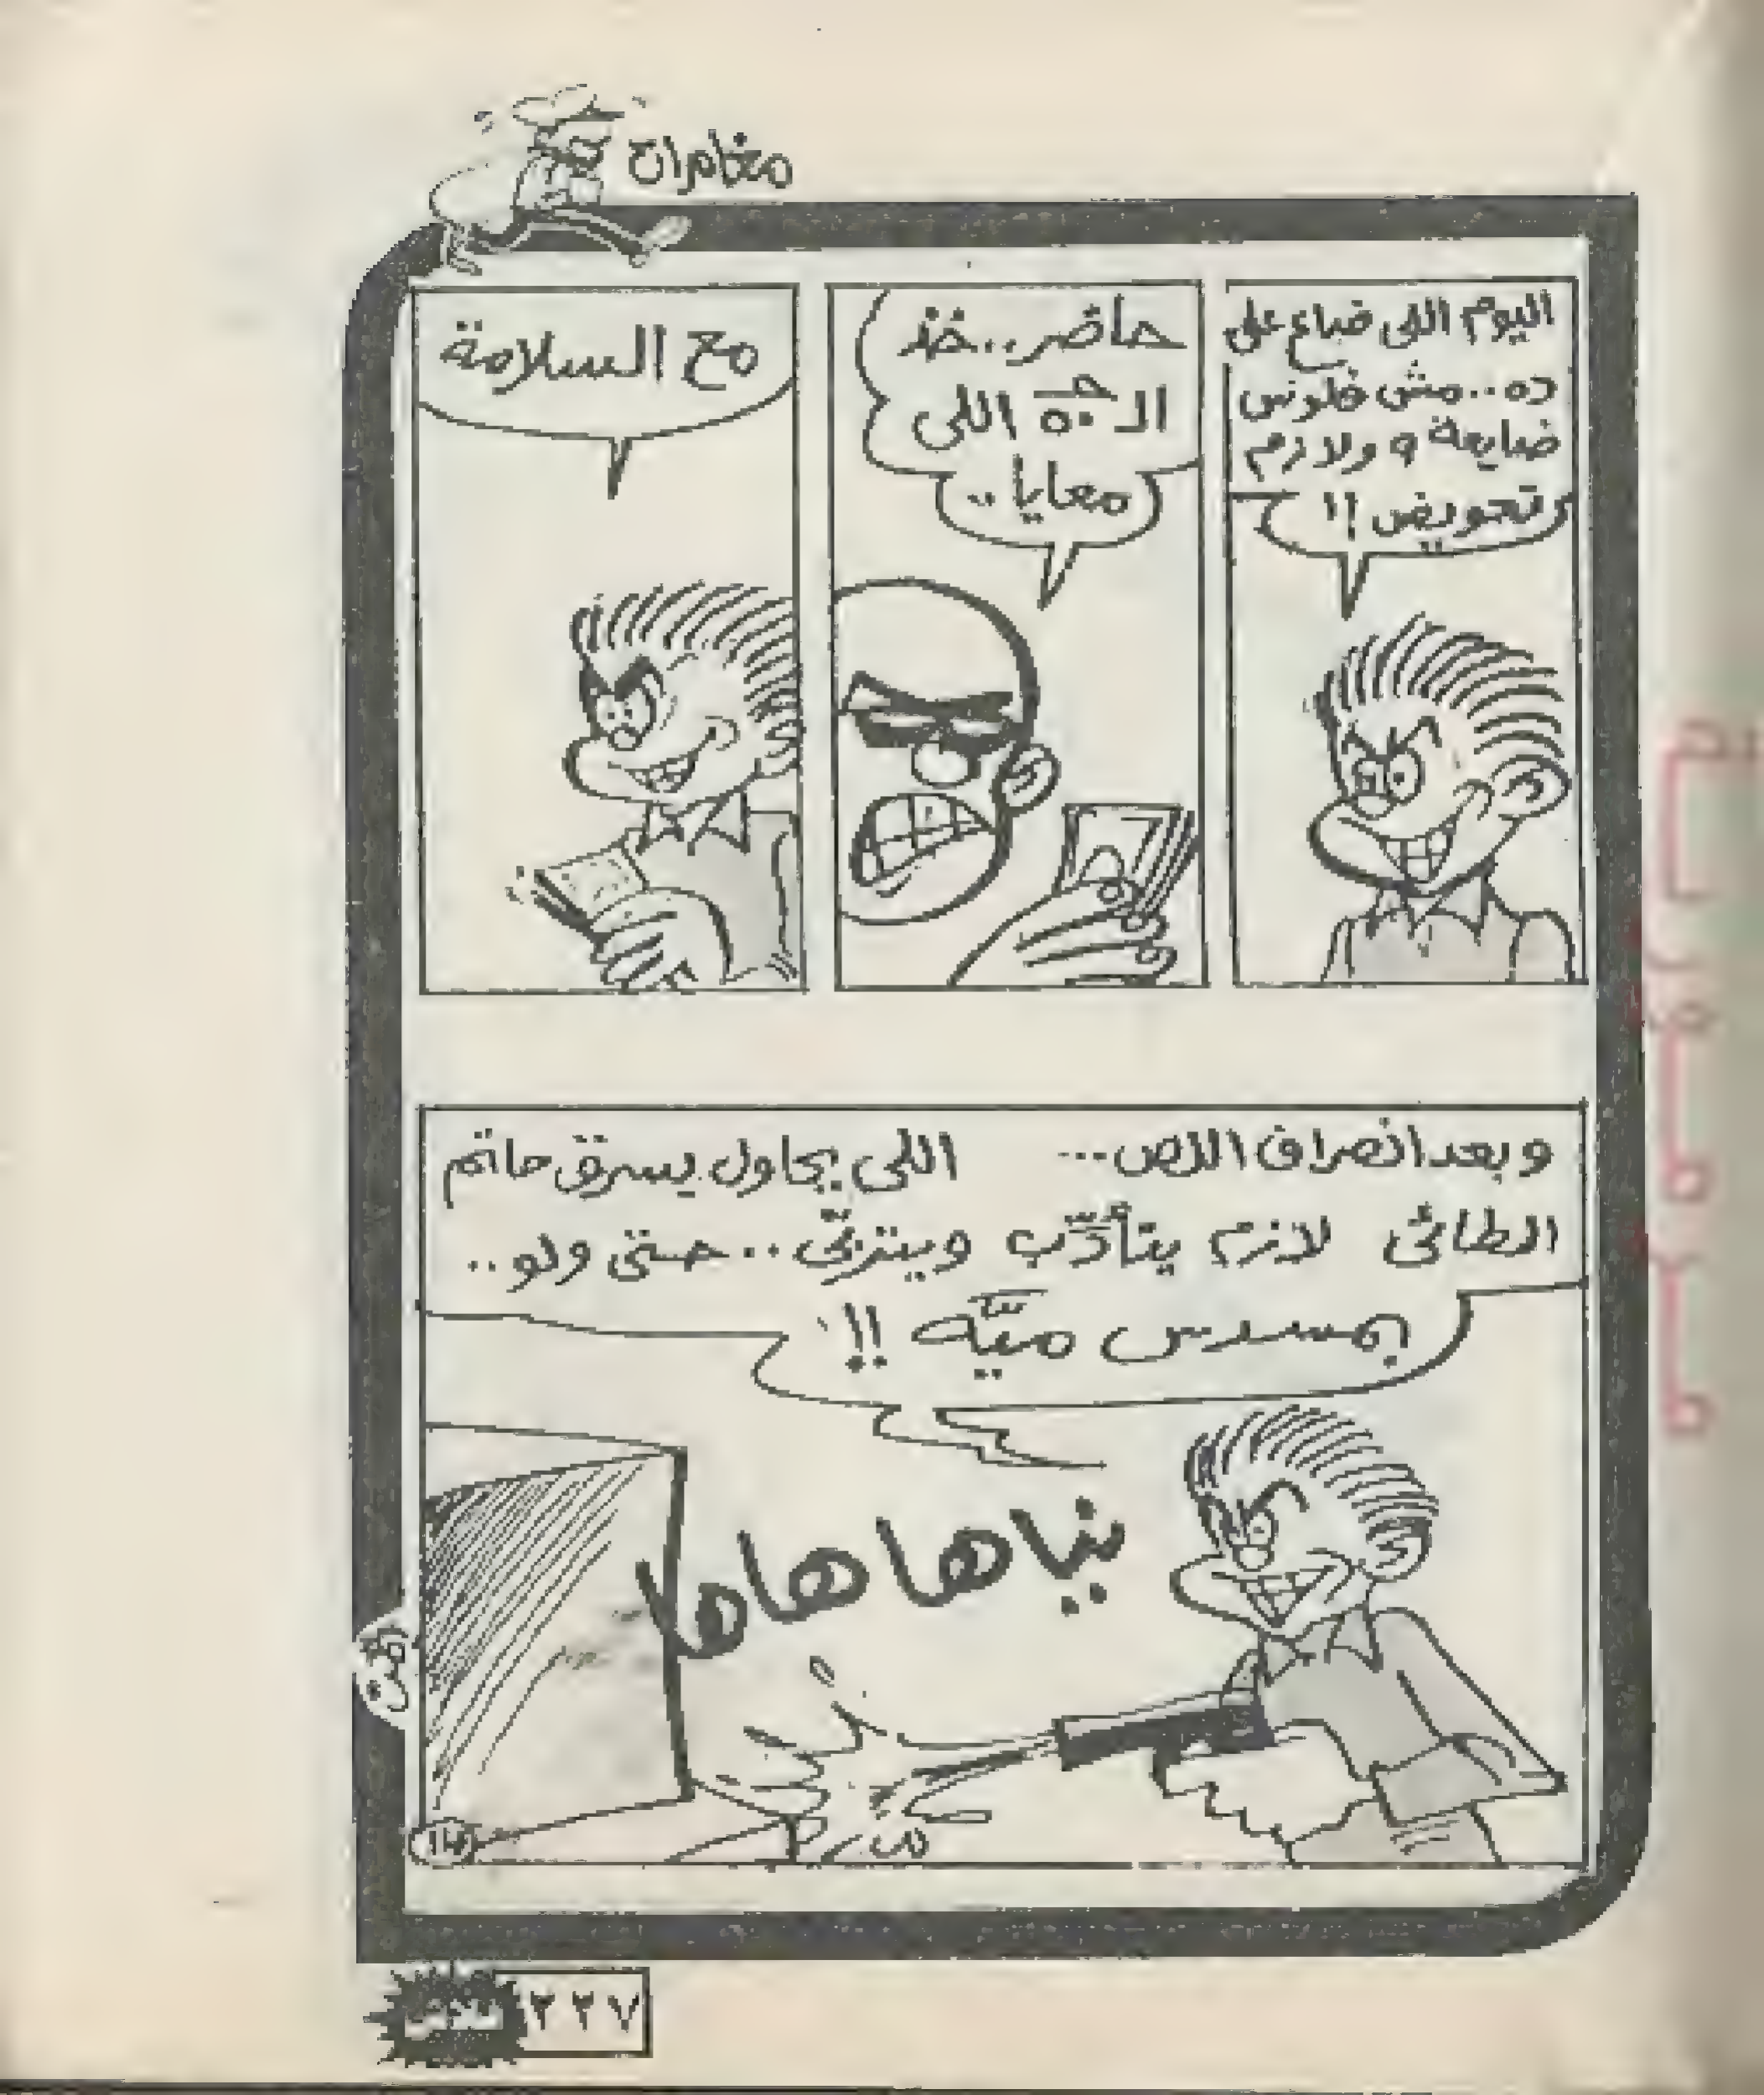 مغامرات
اليوم اللى ضاع على
ده.. مش فلوس
ضايعة و ولازم
تعويض !!
حاضر.. خذ
الـ ٥٠ جـ اللى
معايا..
مع السلامة
وبعد انصراف اللص...
اللى يحاول يسرق حاتم
الطائى لازم يتأدّب ويتربّى.. حتى ولو..
بمسدس ميّه !!
نياها هاها
فلاش
٢٢٧